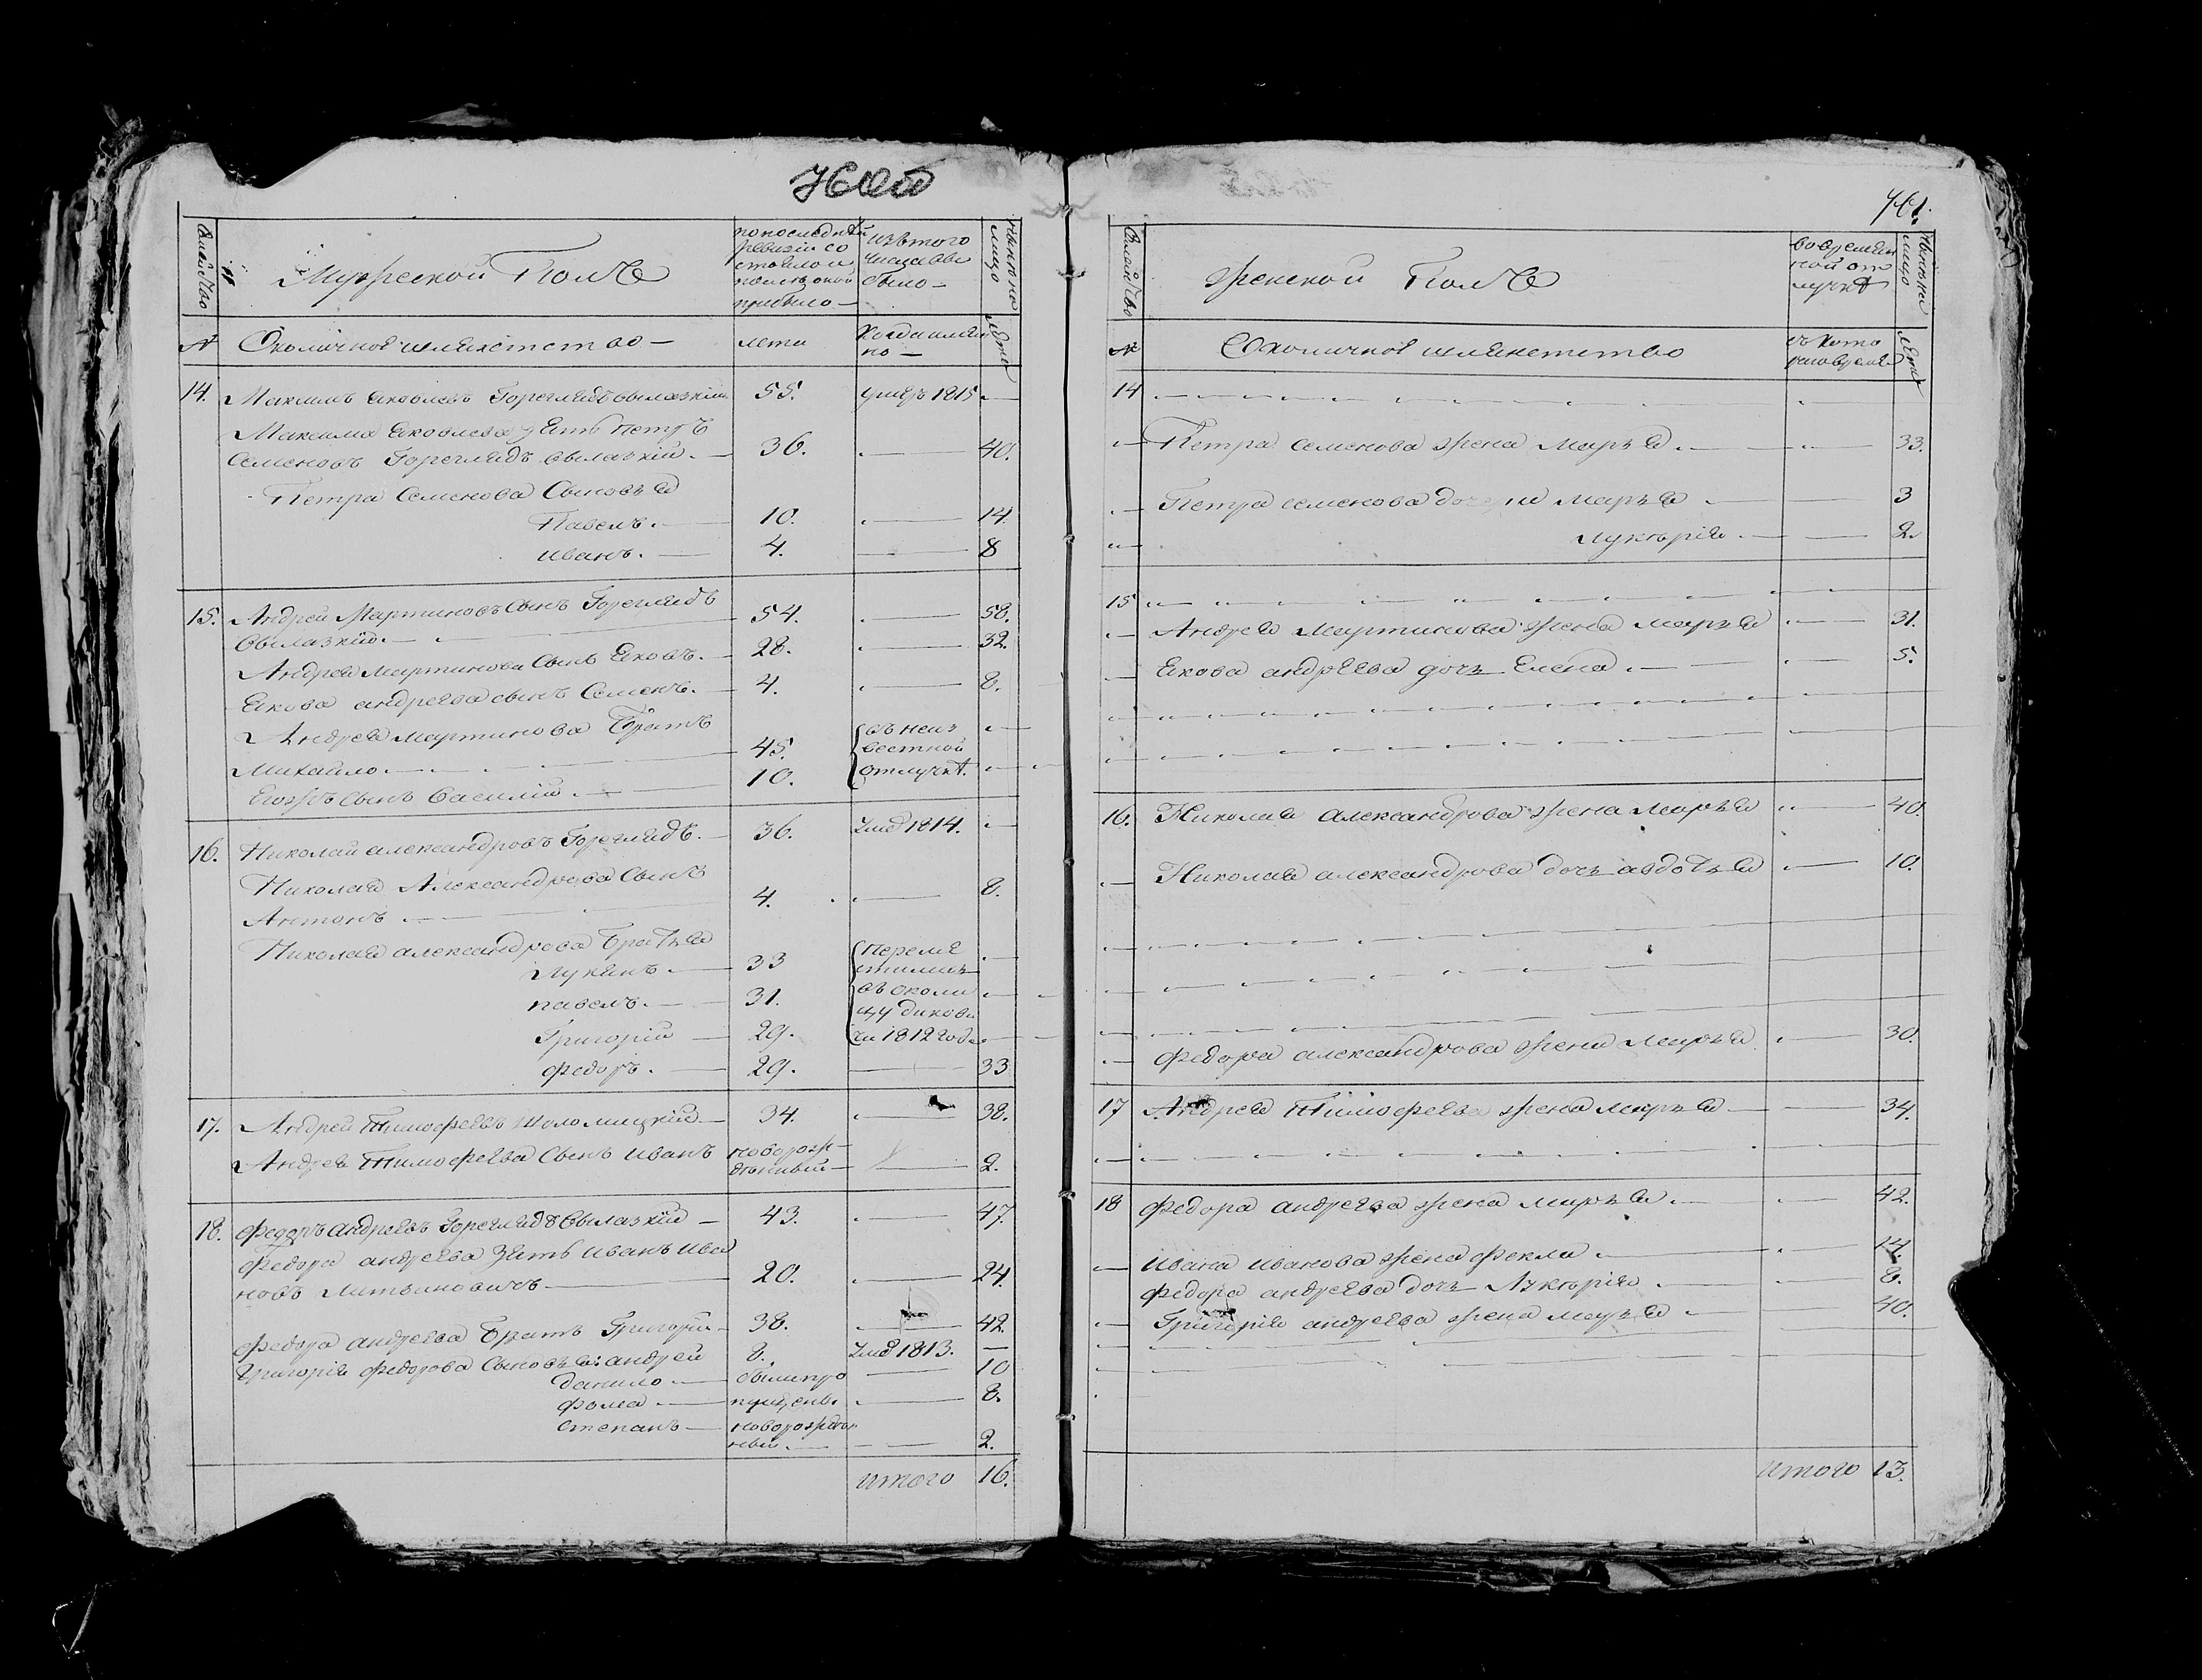 Семейство
Мужеской Полъ
по последней
ревизіи со
стояло и
после оной
прибыло —
изътого
числа вы
было —
Ныне на
лицо
№ Околичное шляхетство —
лета
Когда имен
но —
лета
14. Максимъ Яковлевъ Гореглядъ Овылазкій 55. умеръ 1815 —
Максима Яковлева зять Петръ
Семеновъ Гореглядъ Овылазкій. — 36. — 40.
Петра Семенова Сыновья
Павелъ. — 10. — 14.
Иванъ. — 4. — 8
15. Андрей Мартиновъ Сынъ Гореглядъ 54. — 58.
Овылазкій. —
Андрея Мартинова Сынъ Яковъ. — 28. — 32.
Якова андреева сынъ Семенъ. — 4. — 8.
Андрея мартинова Братъ
Михайло. — 45.
Егожъ сынъ Василій. — 10.
въ неиз
вестной
отлучке.
16. Николай александровъ Гореглядъ. — 36. Умер 1814. —
Николая Александрова Сынъ
Антонъ — 4. — 8.
Николая александрова Братья
Лукянъ. — 33
павелъ. — 31.
Григорій — 29.
переме
стились
въ околи
цу дикови
чи 1812 года
федоръ. — 29. — 33
17. Андрей Тимофеевъ Шоломицкій — 34. — 38.
Андрея Тимофеева Сынъ Иванъ новорож
денный — 2.
18. федоръ андреевъ Гореглядъ Овылазкій — 43. — 47.
федора андреева Зять Иванъ Ива
новъ Литвиновичъ — 20. — 24.
федора андреева Братъ Григорій — 38. — 42.
Григорія федорова Сыновья: андрей 8. Умер 1813. —
данило — были про — 10
фома — пущены — 8.
степанъ — новорожден
ный. — 2.
итого 16.
761.
Семейство
женской Полъ
во времен
ной от
лучке
Ныне на
лицо
№ Околичное шляхетство
съ кото
раго времени
лета
14 —
Петра Семенова жена марья — 33.
Петра семенова дочери марья — 3
лукерія — 2.
15 —
Андрея мартинова жена марья — 31.
Якова андреева дочь Елена. — 5.
16. Николая александрова жена марья — 40.
Николая александрова дочь авдотья — 10.
федора александрова жена марья — 30.
17 Андрея Тимофеева жена марья — 34.
18 федора андреева жена марья — 42.
Ивана иванова жена фекла — 14.
федора андреева дочь Лукерія — 8.
Григорія андреева жена марья — 40.
итого 13.